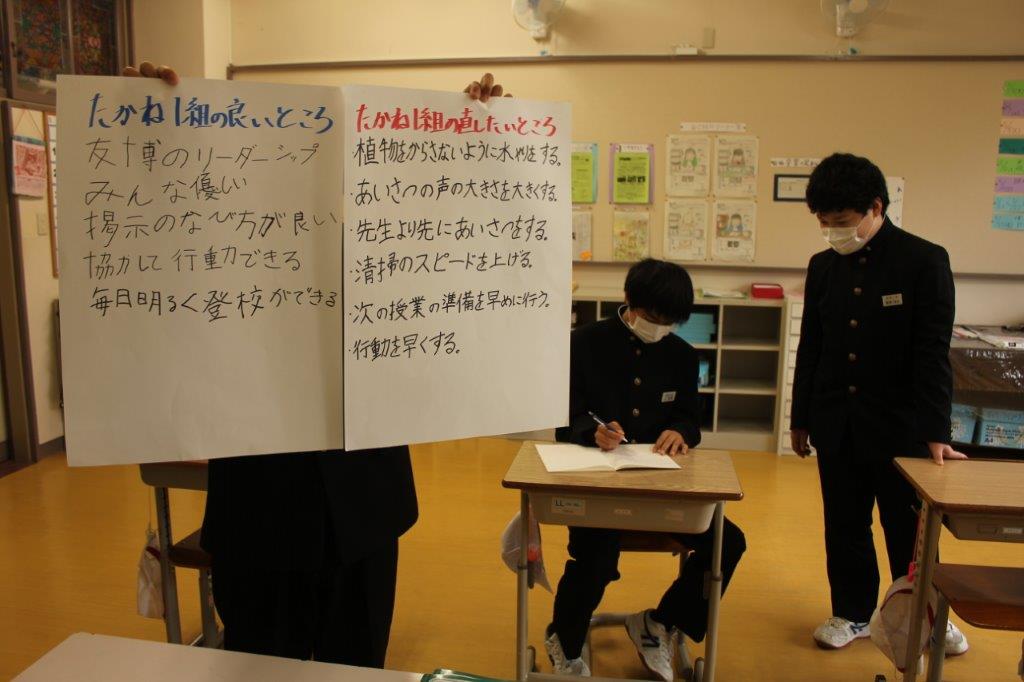 たかね1組の良いところ
友博のリーダーシップ
みんな優しい
掲示のなび方が良い
協力して行動できる
毎日明るく登校ができる
たかね1組の直したいところ
・植物をからさないように水やりをする。
・あいさつの声の大きさを大きくする。
・先生より先にあいさつをする。
・清掃のスピードを上げる。
・次の授業の準備を早めに行う。
・行動を早くする。
LL